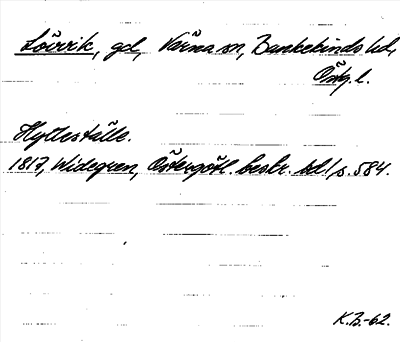 Lövvik, gd, Värna sn, Bankekinds hd,
Östg. l.
Hytteställe.
1817, Widegren, Östergötl. beskr. bd 1 s. 584.
K.B.-62.